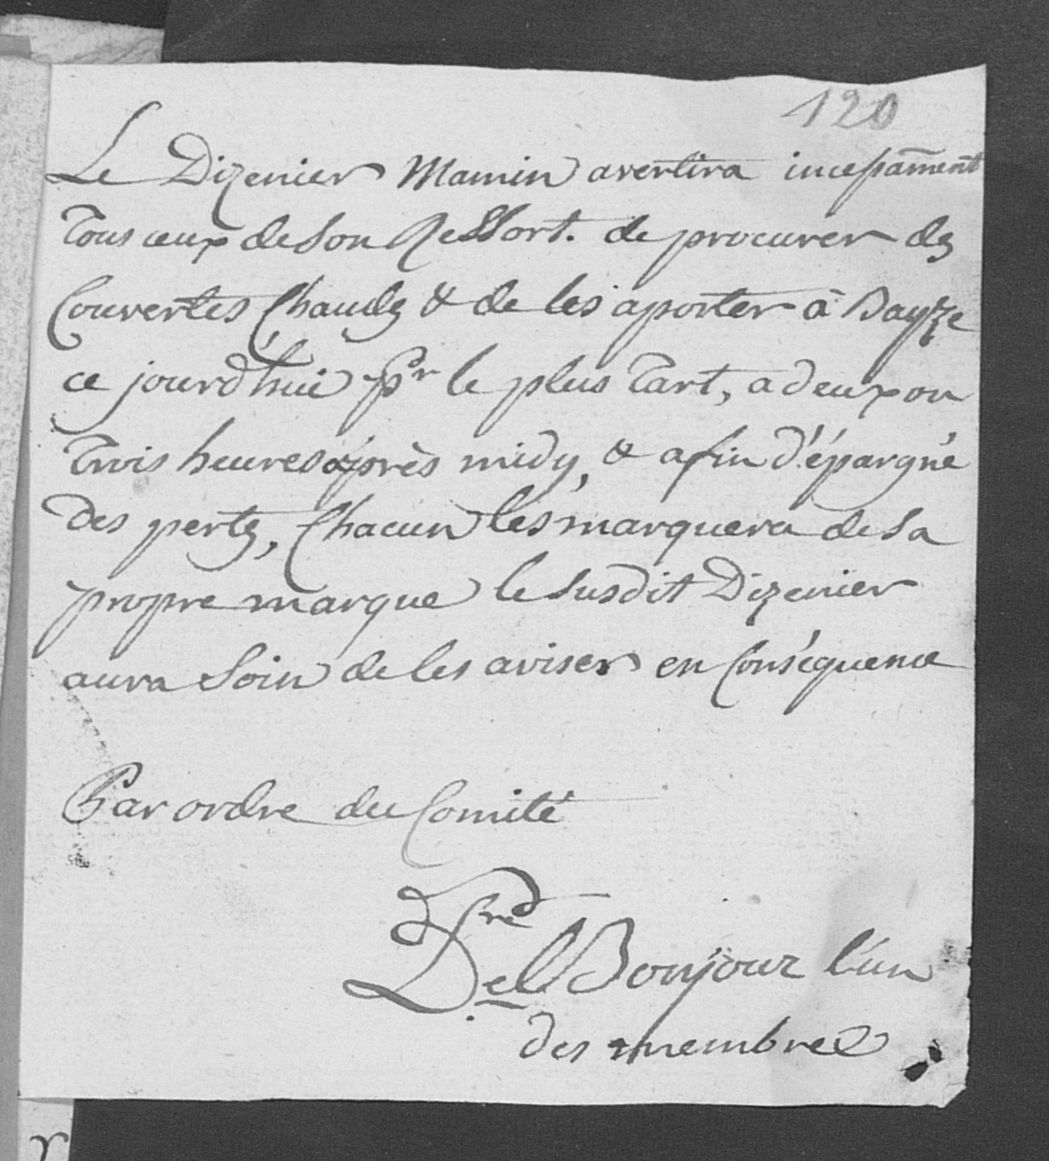 120
Le Dizenier Mamin avertira incessam̄ent
Tous ceux de Son Ressort. de procurer des
Couvertes Chaudes & de les aporter à
ce jourd'hui pr le plus Tart, a deux ou
Trois heures après midy, & afin d'épargné
Des pertes, Chacun les marquera de Sa
propre marque le Susdit Dizenier
aura Soin de les aviser en Conséquence
Par ordre du Comité
Del Bonjour l'un
des membres